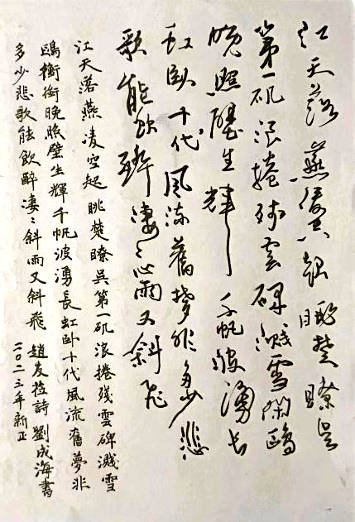 江天落燕凌空起眺楚瞭吳
第一矶浪捲残雲碑濺雪鷗
晚照壁生輝千帆波湧长
虹卧十代風流舊夢非多少悲
歌能飲醉凄〻雨又斜飛
江天落燕凌空起眺楚瞭吳第一矶浪捲残雲碑濺雪
鷗銜晚照壁生輝千帆波湧長虹卧十代風流舊夢非
多少悲歌能飲醉凄〻斜雨又斜飛 趙友詩 劉成海書
二〇二三年新正